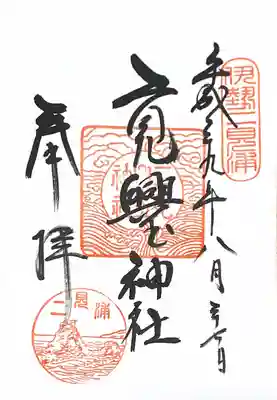 伊勢二見浦
平成二九年八月
二見興玉神社
奉拝
二見浦